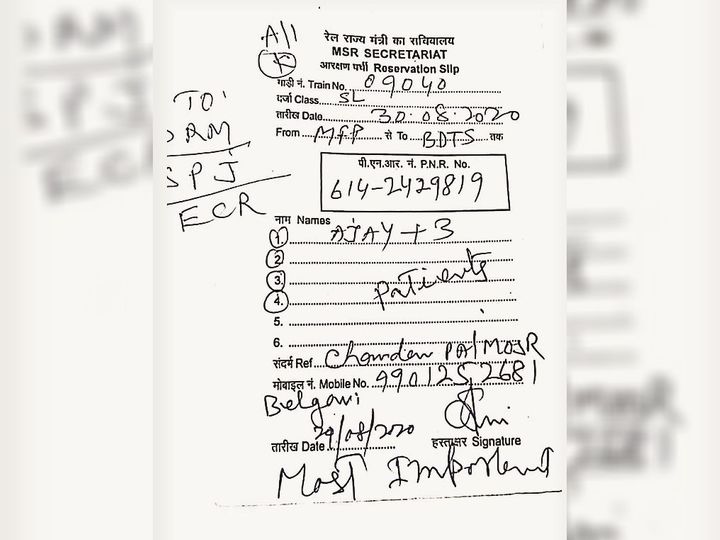 A/1
K
रेल राज्य मंत्री का सचिवालय
MSR SECRETARIAT
आरक्षण पर्ची Reservation Slip
गाड़ी नं. Train No. 09040
दर्जा Class SL
तारीख Date 30.08.2020
From MFP से To BDTS तक
TO
SPJ
ECR
पी.एन.आर. नं. P.N.R. No.
614-2429819
नाम Names
1. AJAY + 3
2.
3. Patients
4.
5.
6.
संदर्भ Ref. Chandan PA/MOSR
मोबाइल नं. Mobile No. 9901252681
Belgavi
तारीख Date 29/08/2020
हस्ताक्षर Signature
Most Important